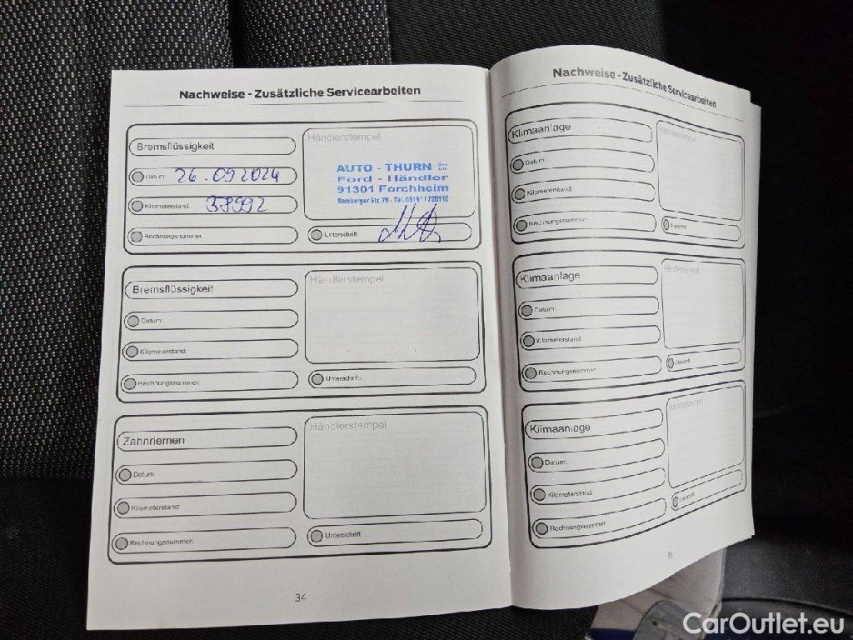 Nachweise - Zusätzliche Servicearbeiten
Bremsflüssigkeit
Händlerstempel
Datum: 26.09.2024
AUTO - THURN
Ford - Händler
91301 Forchheim
Bamberger Str. 79 - Tel.
Kilometerstand:
Rechnungsnummer:
Unterschrift:
Bremsflüssigkeit
Händlerstempel
Datum:
Kilometerstand:
Rechnungsnummer:
Unterschrift:
Zahnriemen
Händlerstempel
Datum:
Kilometerstand:
Rechnungsnummer:
Unterschrift:
34
Nachweise - Zusätzliche Servicearbeiten
Klimaanlage
Händlerstempel
Datum:
Kilometerstand:
Rechnungsnummer:
Klimaanlage
Händlerstempel
Datum:
Kilometerstand:
Rechnungsnummer:
Klimaanlage
Händlerstempel
Datum:
Kilometerstand:
Rechnungsnummer:
CarOutlet.eu